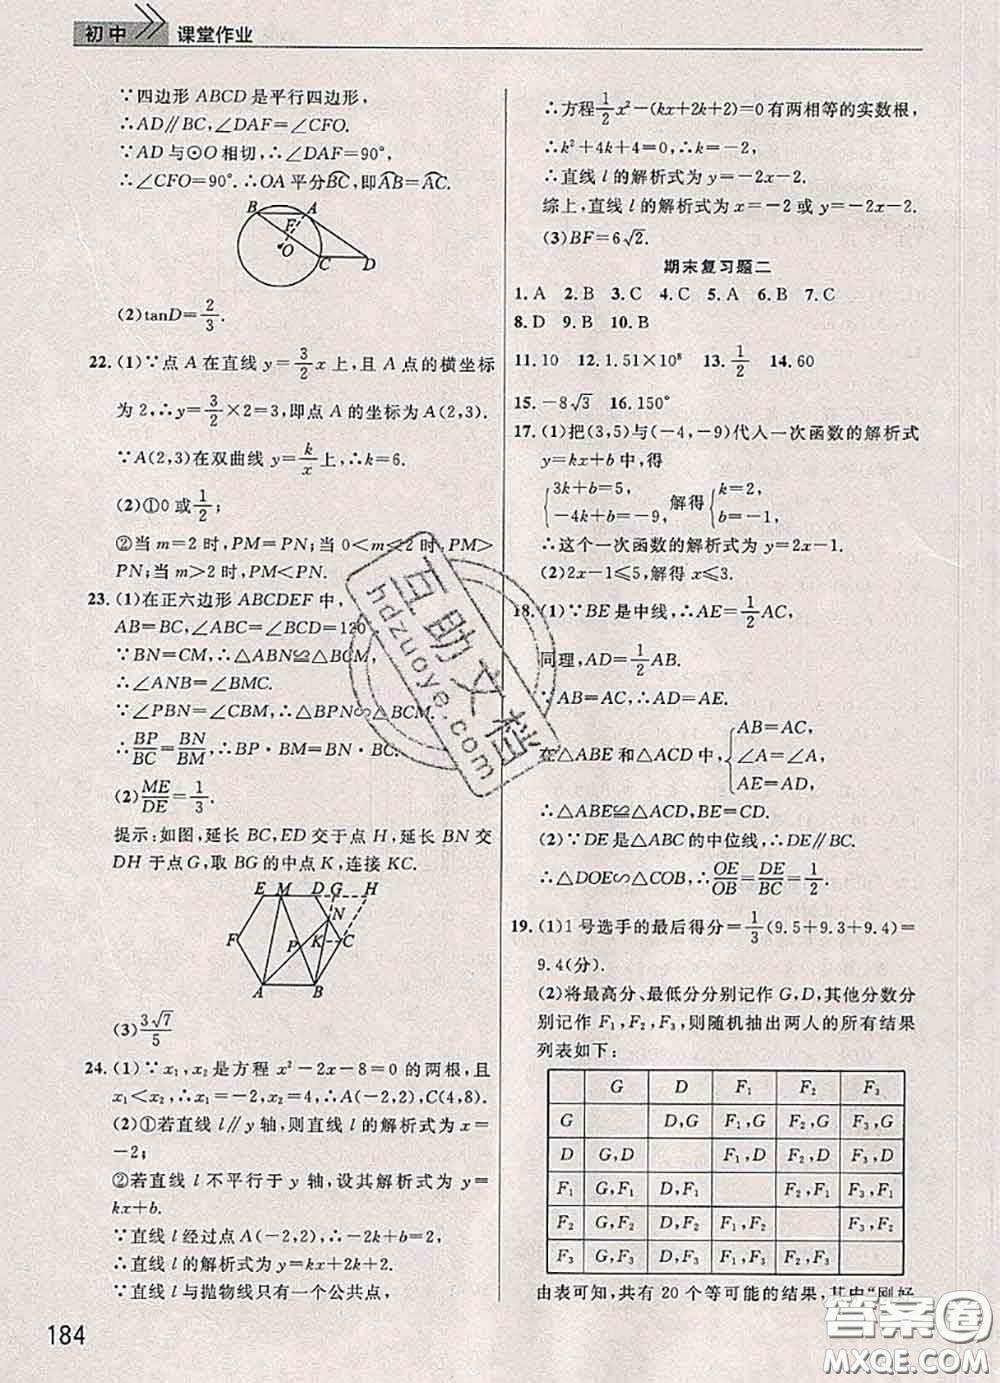 初中 课堂作业
∵四边形 ABCD 是平行四边形，
∴AD∥BC，∠DAF=∠CFO.
∵AD 与⊙O 相切，∴∠DAF=90°，
∴∠CFO=90°. ∴OA 平分⌒BC，即⌒AB=⌒AC.
B A
F
O
C D
(2)tanD=2/3.
22. (1)∵点 A 在直线 y=3/2x 上，且 A 点的横坐标
为 2，∴y=3/2×2=3，即点 A 的坐标为 A(2,3).
∵A(2,3)在双曲线 y=k/x上，∴k=6.
(2)①0 或1/2；
②当 m=2 时，PM=PN；当 0<m<2 时，PM>
PN；当 m>2 时，PM<PN.
23. (1)在正六边形 ABCDEF 中，
AB=BC，∠ABC=∠BCD=120
∵BN=CM，∴△ABN≌△BCM，
∴∠ANB=∠BMC.
∵∠PBN=∠CBM，∴△BPN∽△BCM.
∴BP/BC=BN/BM，∴BP·BM=BN·BC.
(2)ME/DE=1/3.
提示：如图，延长 BC，ED 交于点 H，延长 BN 交
DH 于点 G，取 BG 的中点 K，连接 KC.
E M D G H
N
F P K C
A B
(3)3√7/5
24. (1)∵x₁，x₂ 是方程 x²-2x-8=0 的两根，且
x₁<x₂，∴x₁=-2，x₂=4，∴A(-2,2)，C(4,8).
(2)①若直线 l∥y 轴，则直线 l 的解析式为 x=
-2；
②若直线 l 不平行于 y 轴，设其解析式为 y=
kx+b.
∵直线 l 经过点 A(-2,2)，∴-2k+b=2，
∴直线 l 的解析式为 y=kx+2k+2.
∵直线 l 与抛物线只有一个公共点，
184
∴方程1/2x²-(kx+2k+2)=0 有两相等的实数根，
∴k²+4k+4=0，∴k=-2，
∴直线 l 的解析式为 y=-2x-2.
综上，直线 l 的解析式为 x=-2 或 y=-2x-2.
(3)BF=6√2.
期末复习题二
1. A 2. B 3. C 4. C 5. A 6. B 7. C
8. D 9. B 10. B
11. 10 12. 1.51×10⁸ 13. 1/2 14. 60
15. -8√3 16. 150°
17. (1)把(3,5)与(-4,-9)代入一次函数的解析式
y=kx+b 中，得
{3k+b=5，-4k+b=-9，解得{k=2，b=-1，
∴这个一次函数的解析式为 y=2x-1.
(2)2x-1≤5，解得 x≤3.
18. (1)∵BE 是中线，∴AE=1/2AC，
同理，AD=1/2AB.
∵AB=AC，∴AD=AE.
在△ABE 和△ACD 中，{AB=AC，∠A=∠A，AE=AD，
∴△ABE≌△ACD，BE=CD.
(2)∵DE 是△ABC 的中位线，∴DE∥BC.
∴△DOE∽△COB，∴OE/OB=DE/BC=1/2.
19. (1)1 号选手的最后得分=1/3(9.5+9.3+9.4)=
9.4(分).
(2)将最高分、最低分分别记作 G，D，其他分数分
别记作 F₁，F₂，F₃，则随机抽出两人的所有结果
列表如下：
G D F₁ F₂ F₃
G D，G F₁，G F₂，G F₃，G
D G，D F₁，D F₂，D F₃，D
F₁ G，F₁ D，F₁ F₂，F₁ F₃，F₁
F₂ G，F₂ D，F₂ F₁，F₂ F₃，F₂
F₃ G，F₃ D，F₃ F₁，F₃ F₂，F₃
由表可知，共有 20 个等可能的结果，其中“刚好
互助文档
hdzuoye.com
答案圈
MXQE.COM